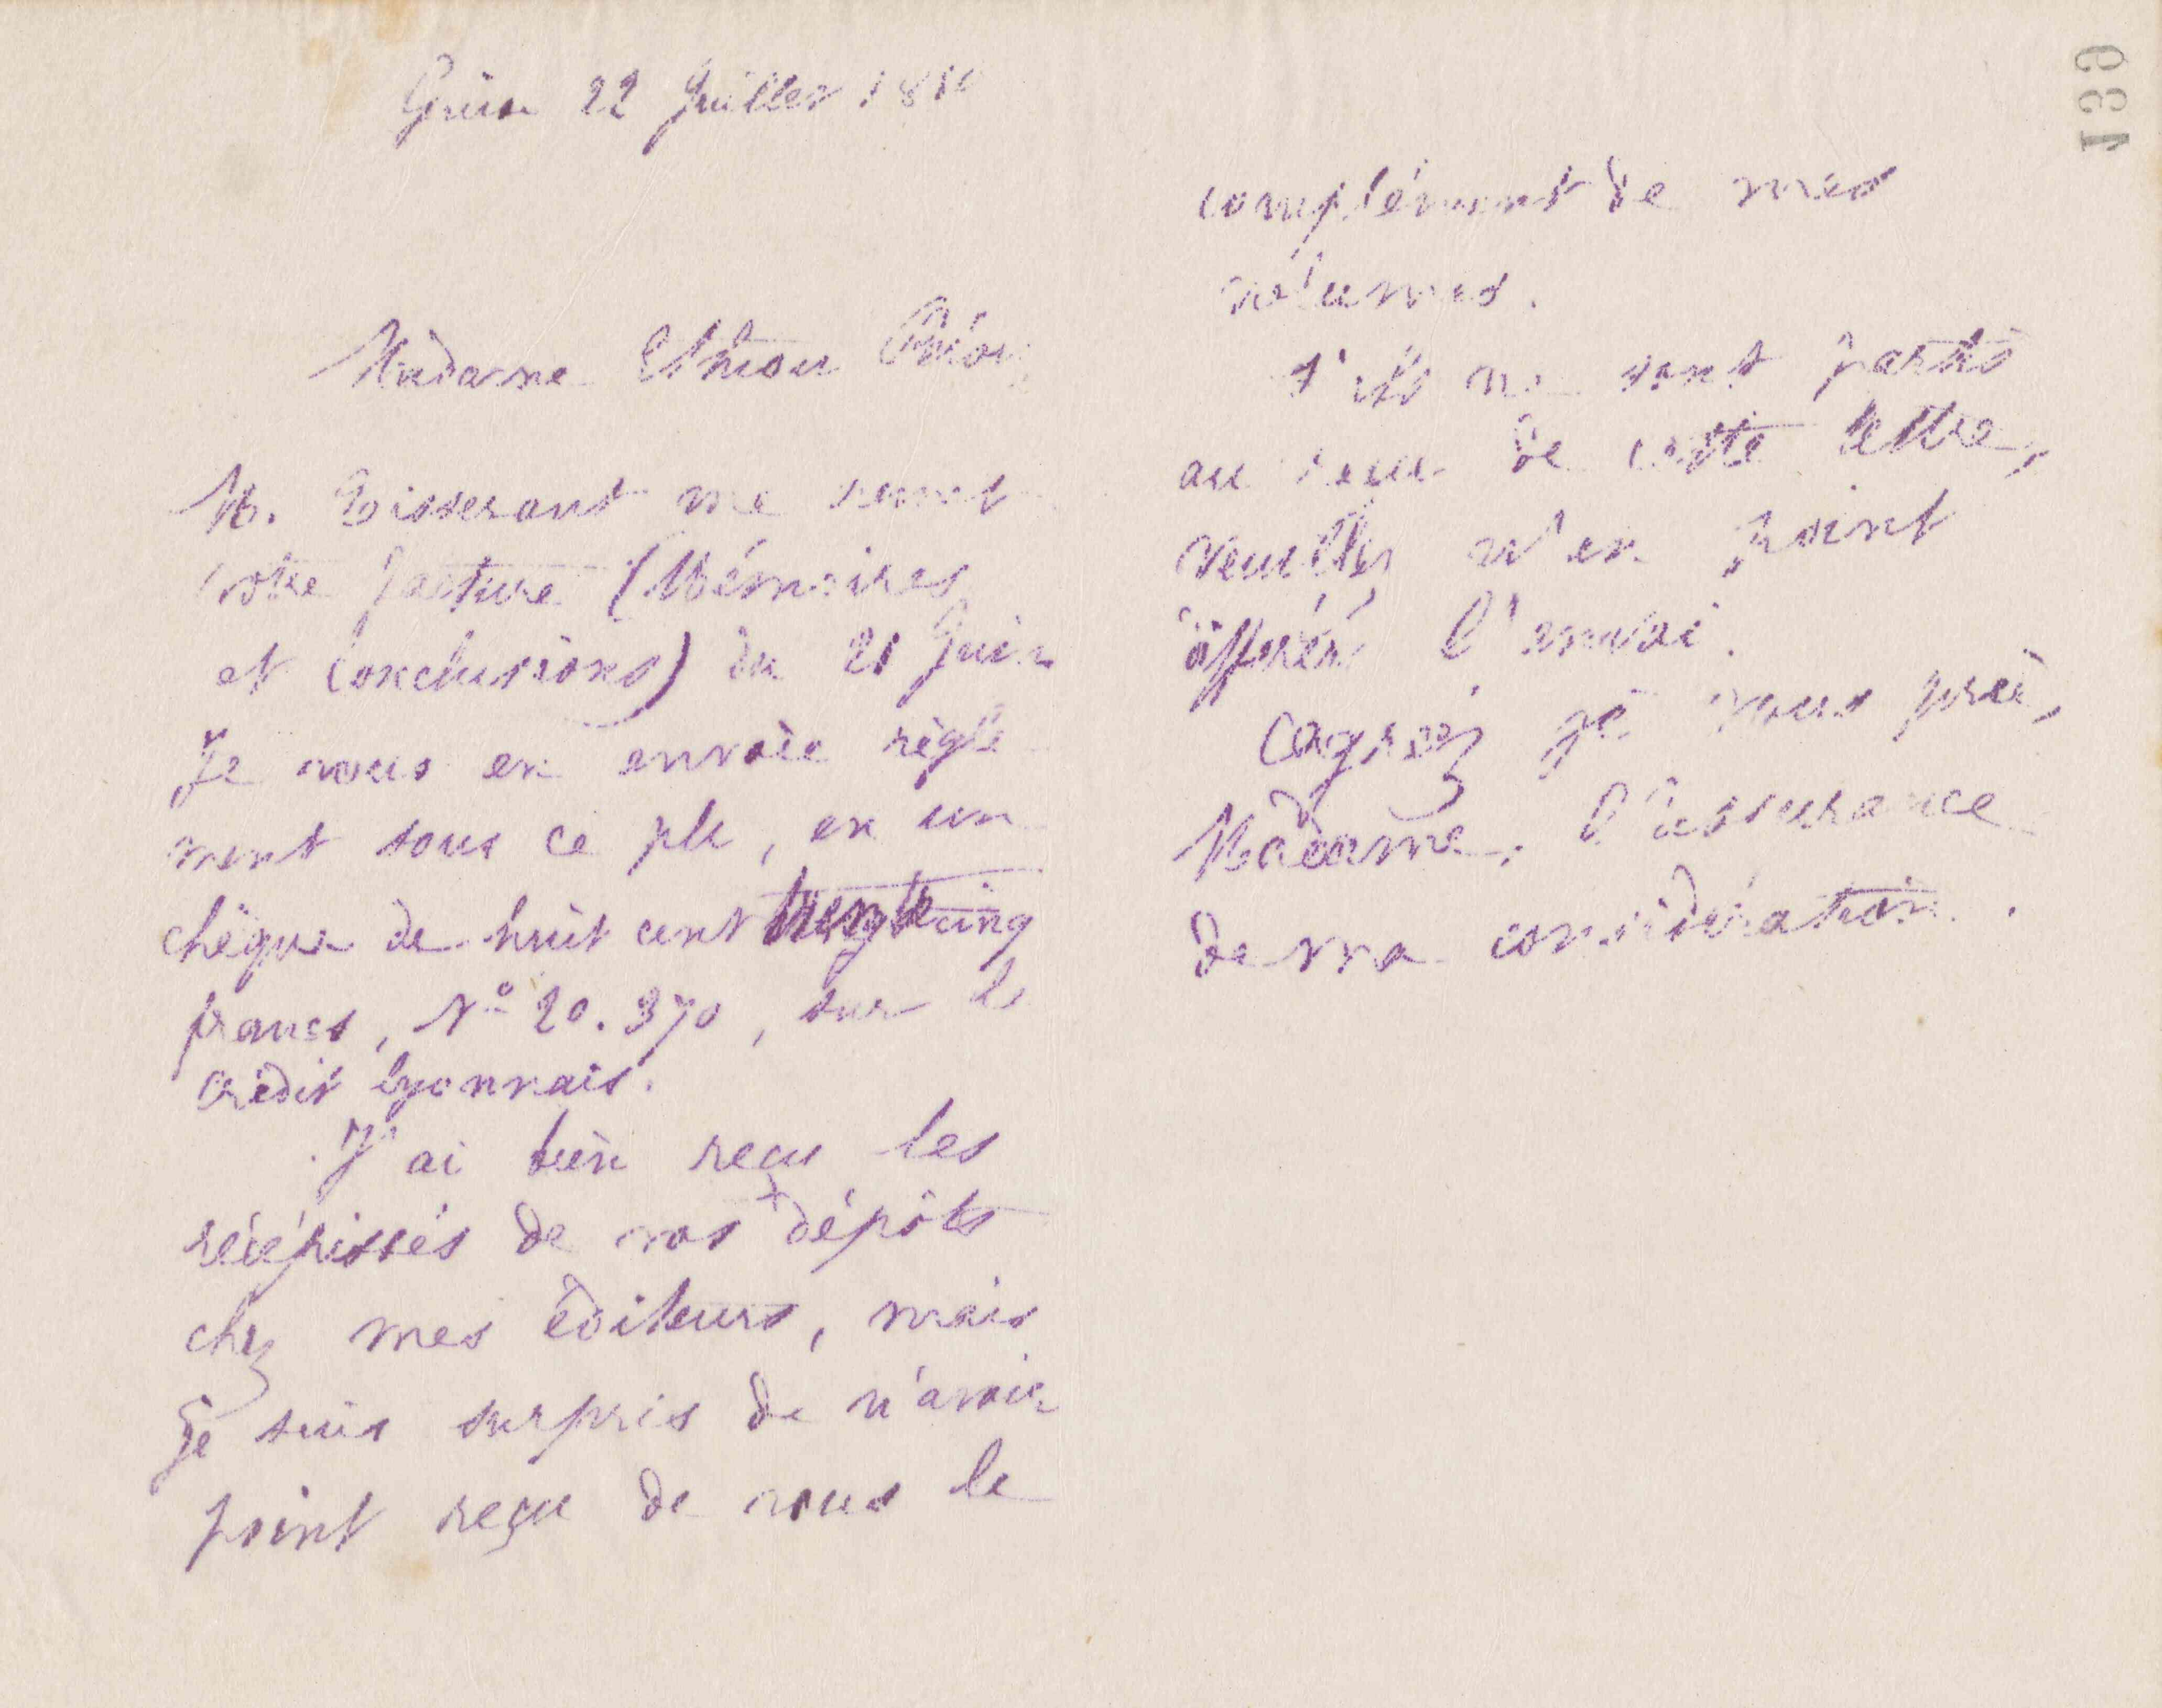 Guise 22 Juillet 18
Madame
M. Tisserant me remet
votre facture (Mémoires
et Conclusions) du 21 Juin
Je vous en envoie règle
ment sous ce pli, en un
chèque de huit cent cinq
francs, No 20.370, sur le
Crédit lyonnais.
J'ai bien reçu les
récépissés de vos dépôts
chez mes éditeurs, mais
je suis surpris de n'avoir
point reçu de vous le
complément de mes
volumes.
S'ils ne sont partis
au reçu de cette lettre,
veuillez n'en point
différer l'envoi.
Agréez je vous prie,
Madame, l'assurance
de ma considération.
139